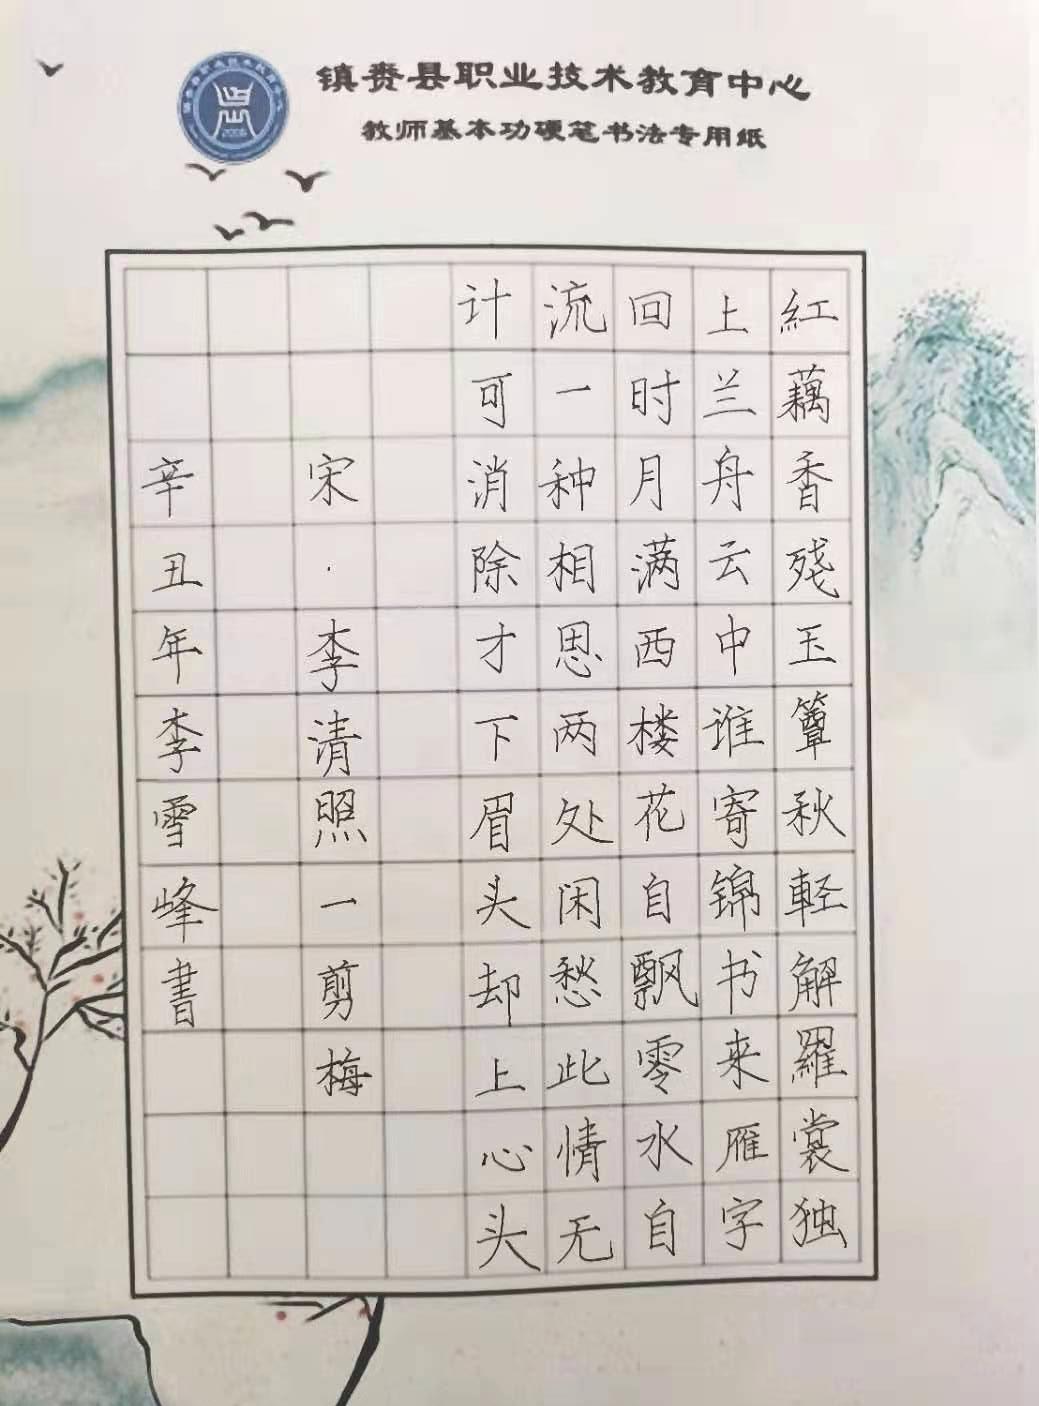 镇赉县职业技术教育中心
教师基本功硬笔书法专用纸
紅藕香殘玉簟秋輕解羅裳独
上兰舟云中谁寄锦书来雁字
回时月满西楼花自飘零水自
流一种相思两处闲愁此情无
计可消除才下眉头却上心头
宋·李清照一剪梅
辛丑年李雪峰書